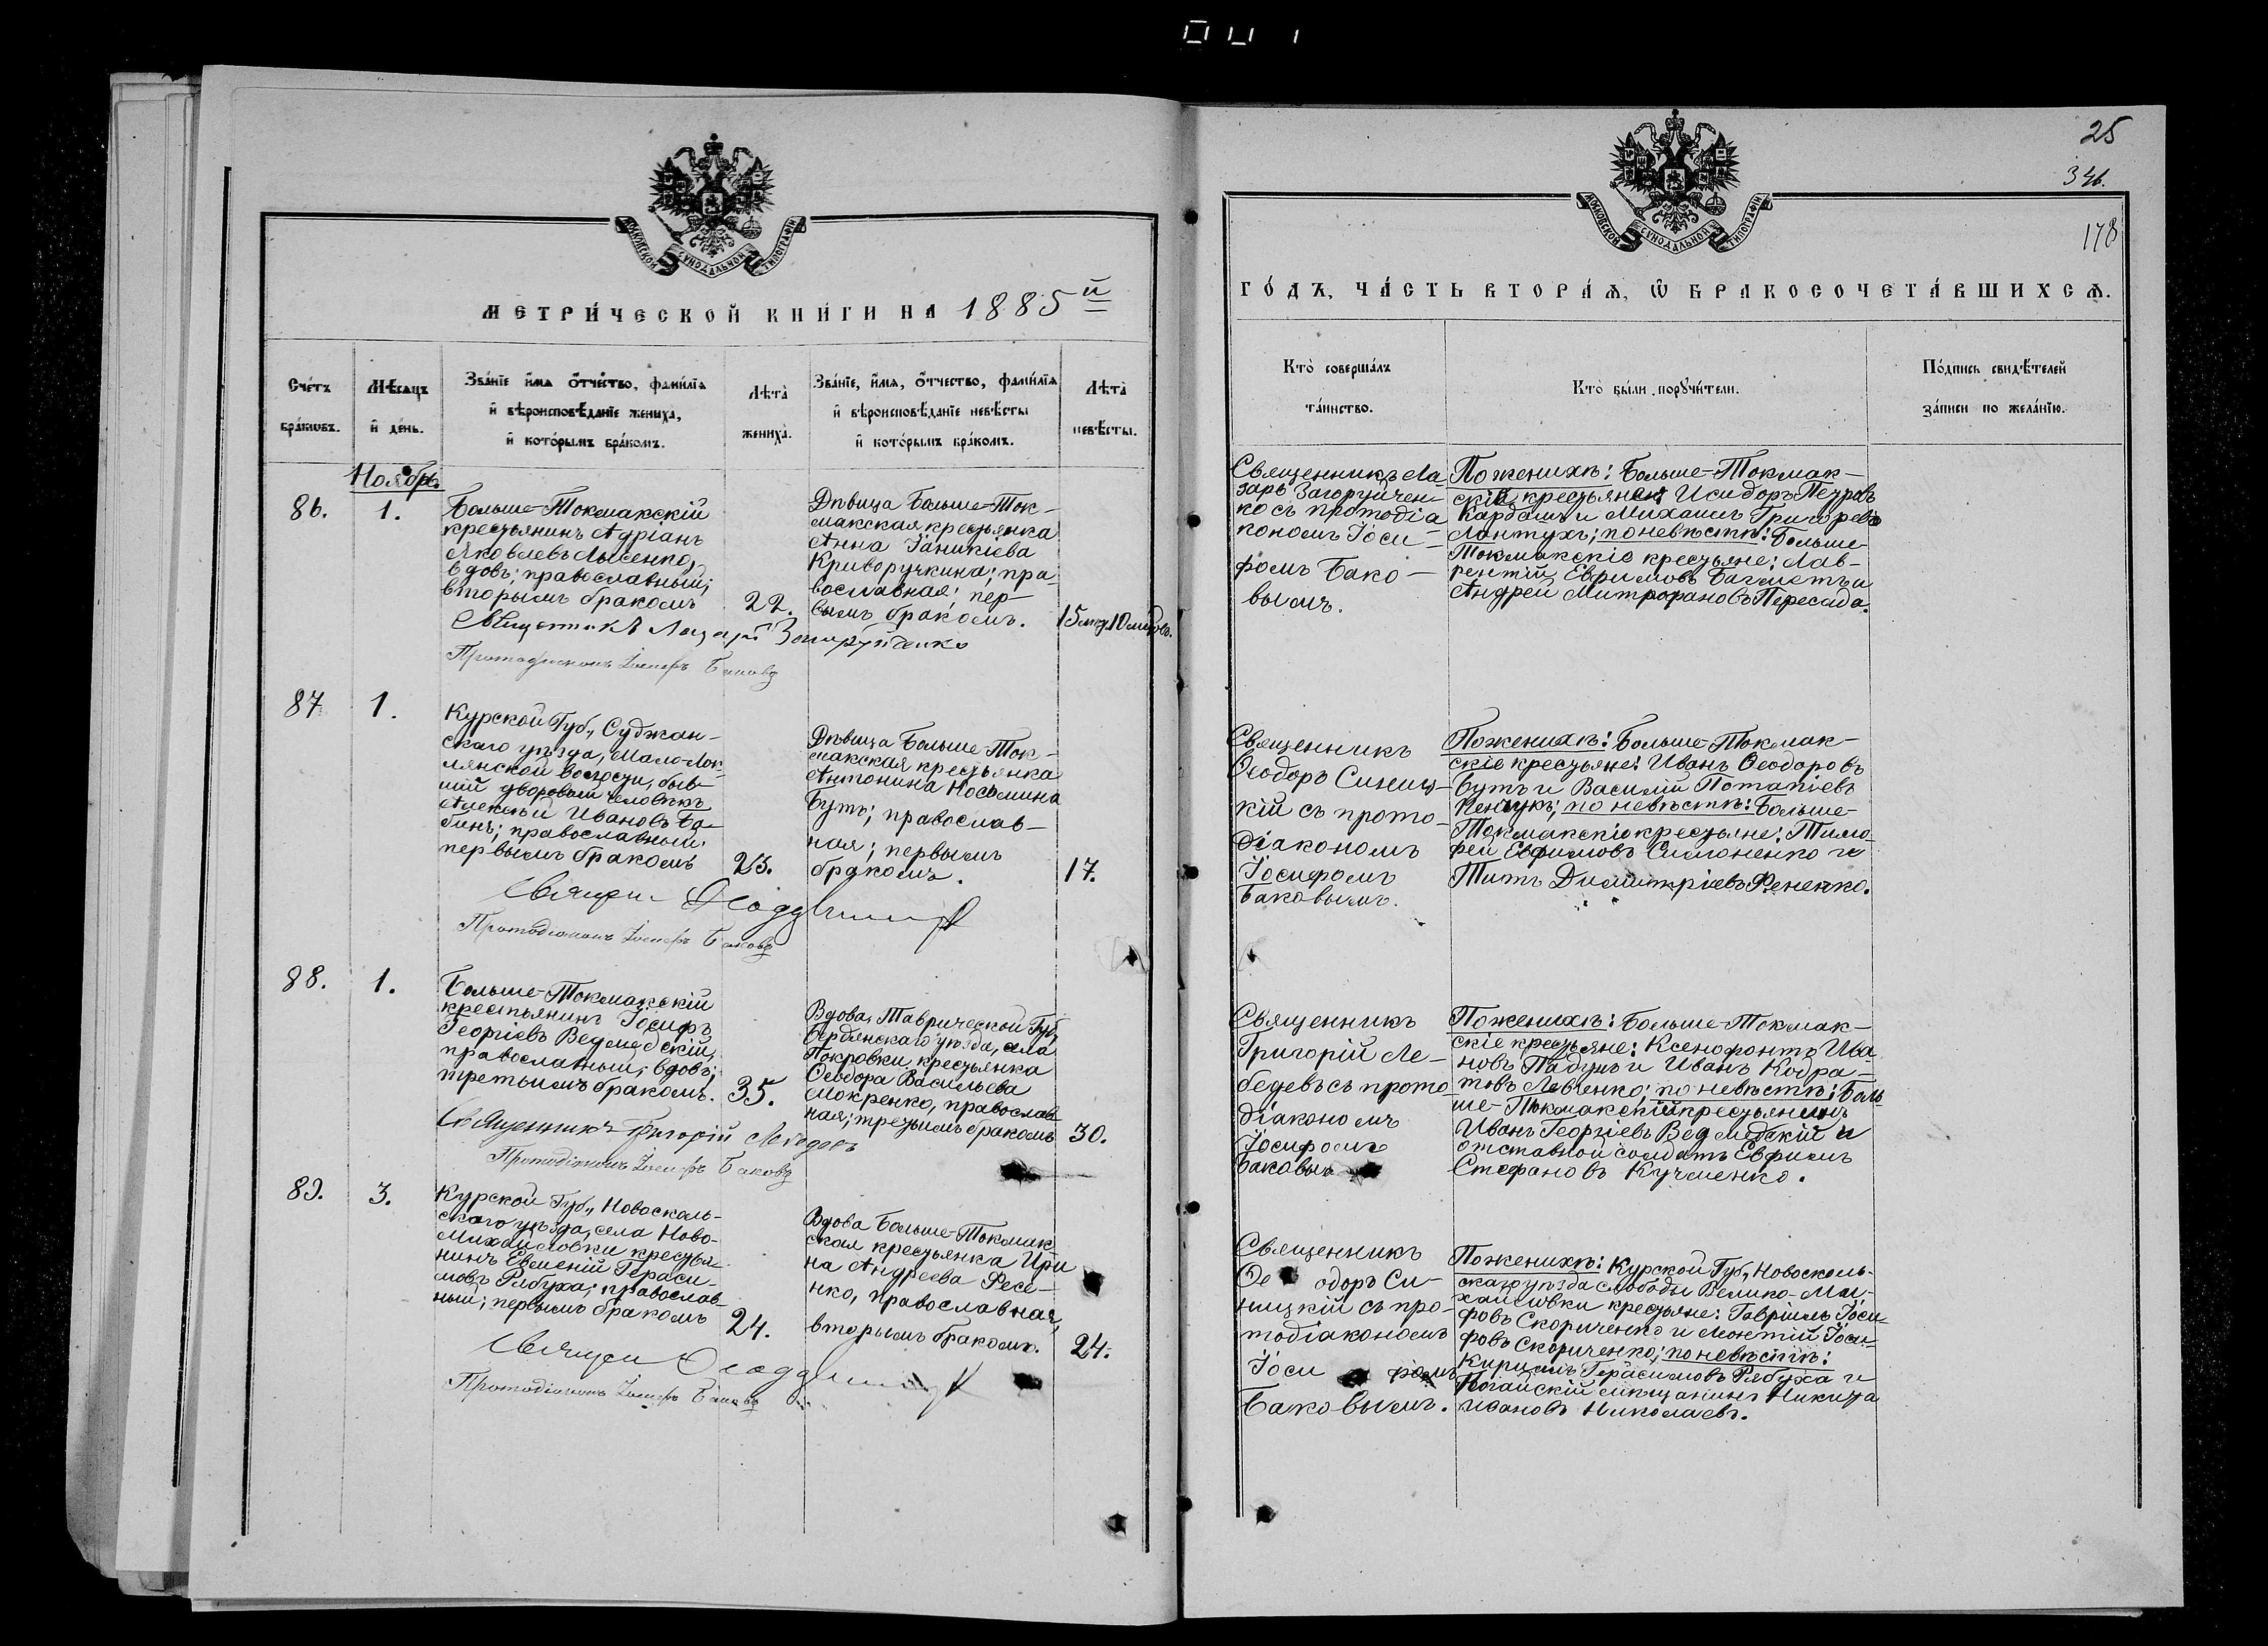 25
346.
178
МОСКОВСКОЙ СУНОДАЛЬНОЙ ТИПОГРАФІИ
МЕТРИ́ЧЕСКОЙ КНИ́ГИ НА 1885й
Сче́тъ бра́ковъ.
Мѣ́сяцъ и де́нь.
Зва́нїе и́мя ѻ́тчество, фами́лїя
и вѣроисповѣ́данїе жениха̀,
и кото́рымъ бра́комъ.
Лѣта̀ жениха̀.
Зва́нїе, и́мя, ѻ́тчество, фами́лїя
и вѣроисповѣ́данїе невѣ́сты
и кото́рымъ бра́комъ.
Лѣта̀ невѣ́сты.
Ноябрь.
86.
1.
Больше-Токмакскій
крестьянинъ Адріанъ
Яковлевъ Лысенко,
вдовъ; православный;
вторымъ бракомъ
22.
Дѣвица Больше-Ток-
макская крестьянка
Анна Іаникіева
Криворучкина; пра-
вославная; пер-
вымъ бракомъ.
Священникъ Лазарь Загоруйченко
Протодіаконъ Іосифъ Баковъ
87
1.
Курской Губ., Суджан-
скаго уѣзда, Мало-Лок-
нянской волости, быв-
шій дворовый человѣкъ
Алексѣй Ивановъ Ба-
бинъ; православный;
первымъ бракомъ
23.
Дѣвица Больше-Ток-
макская крестьянка
Антонина
Бутъ; православ-
ная; первымъ
бракомъ.
17.
Протодіаконъ Іосифъ Баковъ
88.
1.
Больше-Токмакскій
крестьянинъ Іосифъ
Георгіевъ Ведмедскій,
православный; вдовъ;
третьимъ бракомъ.
35.
Вдова, Таврической Губ.,
Бердянскаго уѣзда, села
Покровки крестьянка
Ѳеодора Васильева
Мокренко, православ-
ная; третьимъ бракомъ
30.
Священникъ Григорій Лебедевъ
Протодіаконъ Іосифъ Баковъ
89.
3.
Курской Губ., Новосколь-
скаго уѣзда, села Ново-
Михайловки крестья-
нинъ Евгеній Гераси-
мовъ Рябуха; православ-
ный; первымъ бракомъ
24.
Вдова Больше-Токмак
ская крестьянка Ири
на Андреева Фесе-
нко, православная,
вторымъ бракомъ.
24.
Протодіаконъ Іосифъ Баковъ
МОСКОВСКОЙ СУНОДАЛЬНОЙ ТИПОГРАФІИ
ГО́ДЪ, ЧА́СТЬ ВТОРА́Я, Ѡ БРАКОСОЧЕТА́ВШИХСЯ.
Кто̀ соверша́лъ
та́инство.
Кто̀ бы́ли поручи́тели.
По́дпись свидѣ́телей
за́писи по жела́нїю.
Священникъ Ла
зарь Загоруйчен-
ко съ протодіа
кономъ Іоси-
фомъ Бако-
вымъ.
По женихѣ: Больше-Токмак-
скіе крестьяне: Исидоръ Петровъ
Кардашъ и Михаилъ Григорьевъ
Лантухъ; по невѣстѣ: Больше-
Токмакскіе крестьяне: Лав-
рентій Евфимовъ Багметъ и
Андрей Митрофановъ Пересада.
Священникъ
Ѳеодоръ Синиц-
кій съ прото-
діакономъ
Іосифомъ
Баковымъ.
По женихѣ: Больше-Токмак-
скіе крестьяне: Иванъ Ѳеодоровъ
Бутъ и Василій Потапіевъ
по невѣстѣ: Больше-
Токмакскіе крестьяне: Тимо-
фей Евфимовъ Симоненко и
Титъ Димитріевъ Фененко.
Священникъ
Григорій Ле-
бедевъ съ прото
діакономъ
Іосифомъ
Баковы
По женихѣ: Больше-Токмак-
скіе крестьяне: Ксенофонтъ Ива
новъ Падунъ и Иванъ Кодра-
товъ Левченко; по невѣстѣ: Боль-
ше-Токмакскій крестьянинъ
Иванъ Георгіевъ Ведмедскій и
отставной солдатъ Евфимъ
Стефановъ Кучменко.
Священникъ
Ѳе одоръ Си-
ницкій съ про-
тодіакономъ
Іоси фомъ
Баковымъ.
По женихѣ: Курской Губ., Новосколь-
скаго уѣзда слободы Велико-Ми-
хайловки крестьяне: Гавріилъ Іоси-
фовъ Скориченко и Леонтій Іоси-
фовъ Скориченко; по невѣстѣ:
Кириллъ Герасимовъ Рябуха и
Ногайскій мѣщанинъ Никита
Ивановъ Николаевъ.